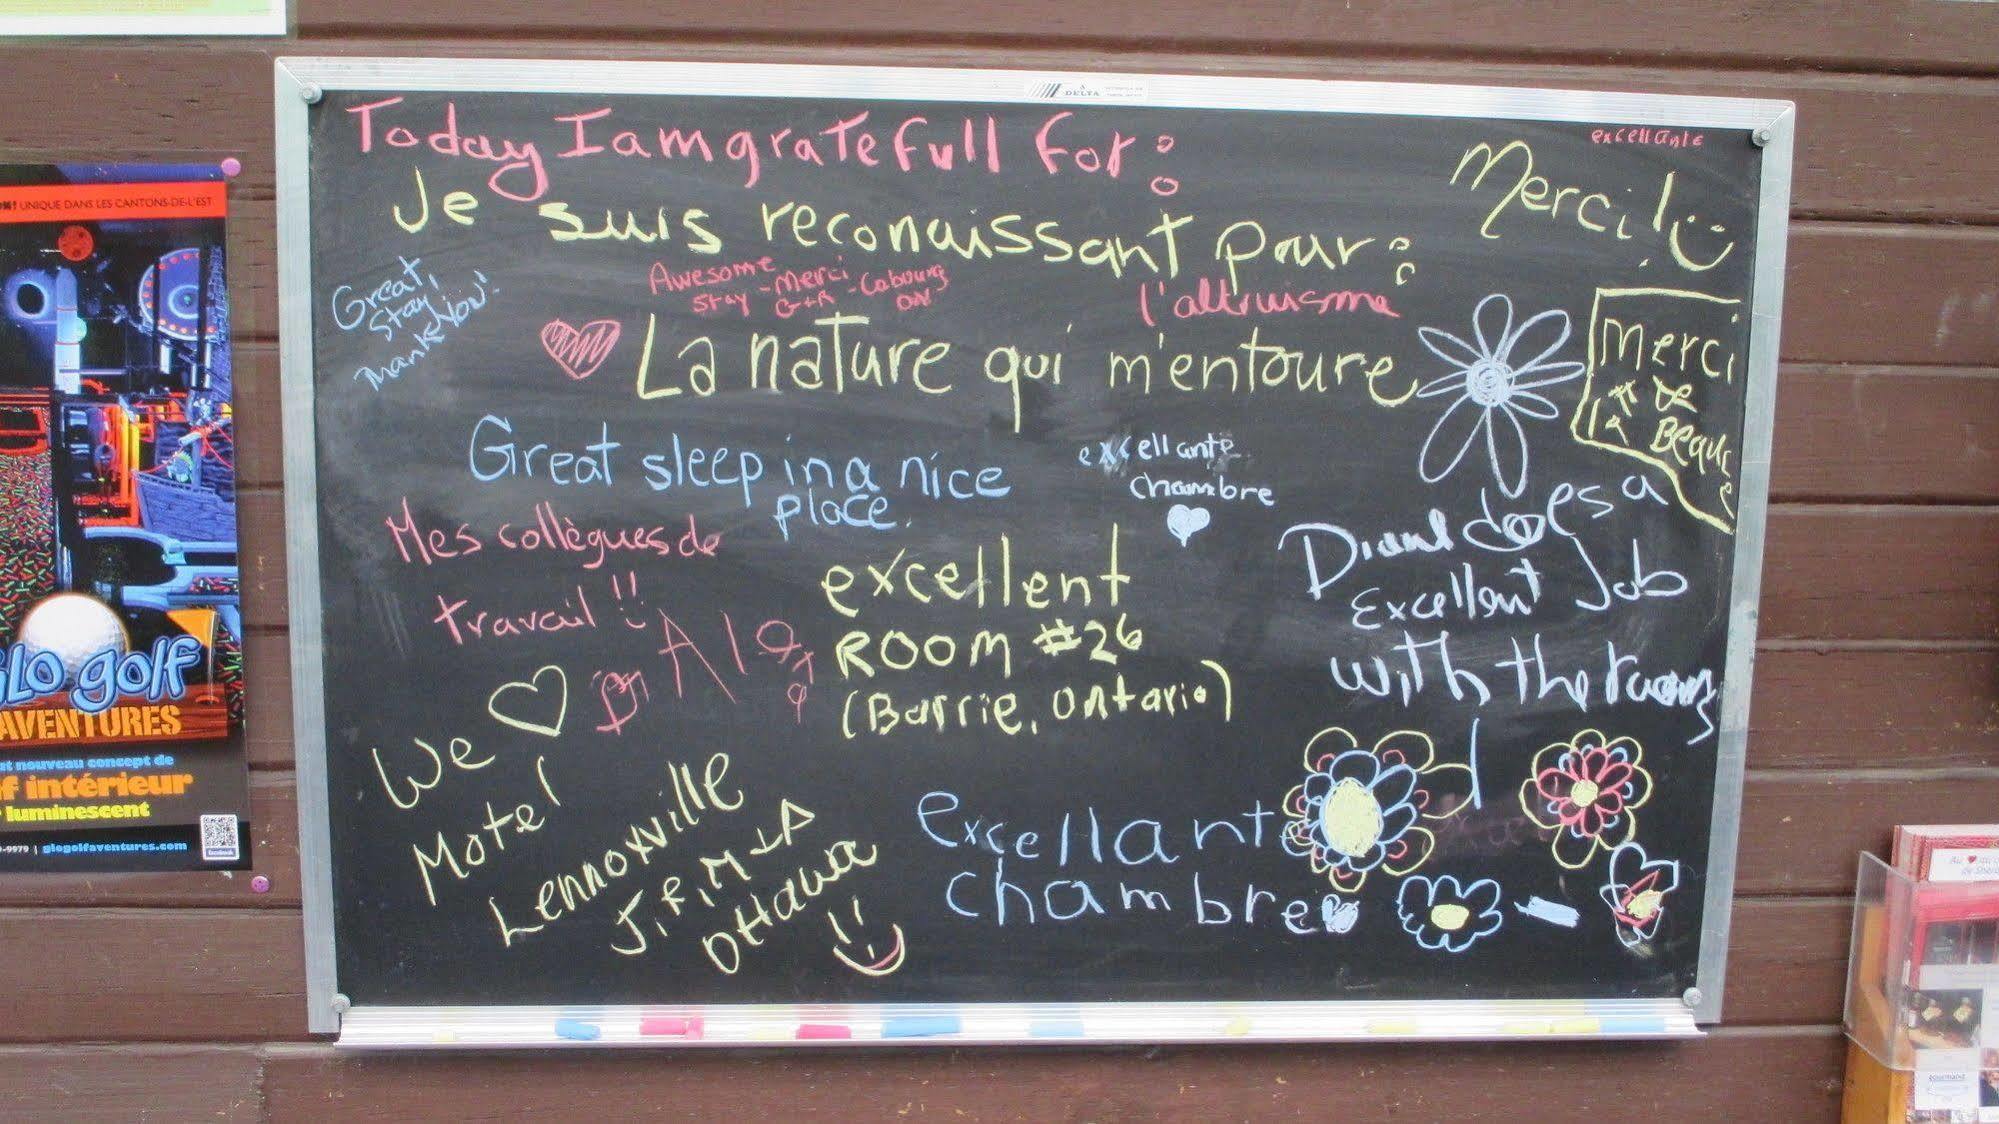 Today I am gratefull for:
excellante
Merci!
Je suis reconaissant pour:
Great, Stay
Thank You!
Awesome
Stay - Merci - Cobourg
G+R ON
l'altruisme
La nature qui m'entoure
Merci
DE
la
BEAUCE
Great sleep in a nice
place.
excellante
chambre
Mes collègues de
travail!!
does a
Excellent Job
with the rooms
excellent
ROOM #26
(Barrie, Ontario)
We
Motel
Lennoxville
J, R, M + A
Ottawa
excellant
chambre
DELTA
UNIQUE DANS LES CANTONS-DE-L'EST
GLO golf
AVENTURES
nouveau concept de
intérieur
luminescent
-9979 | glogolfaventures.com
facebook
gourmand